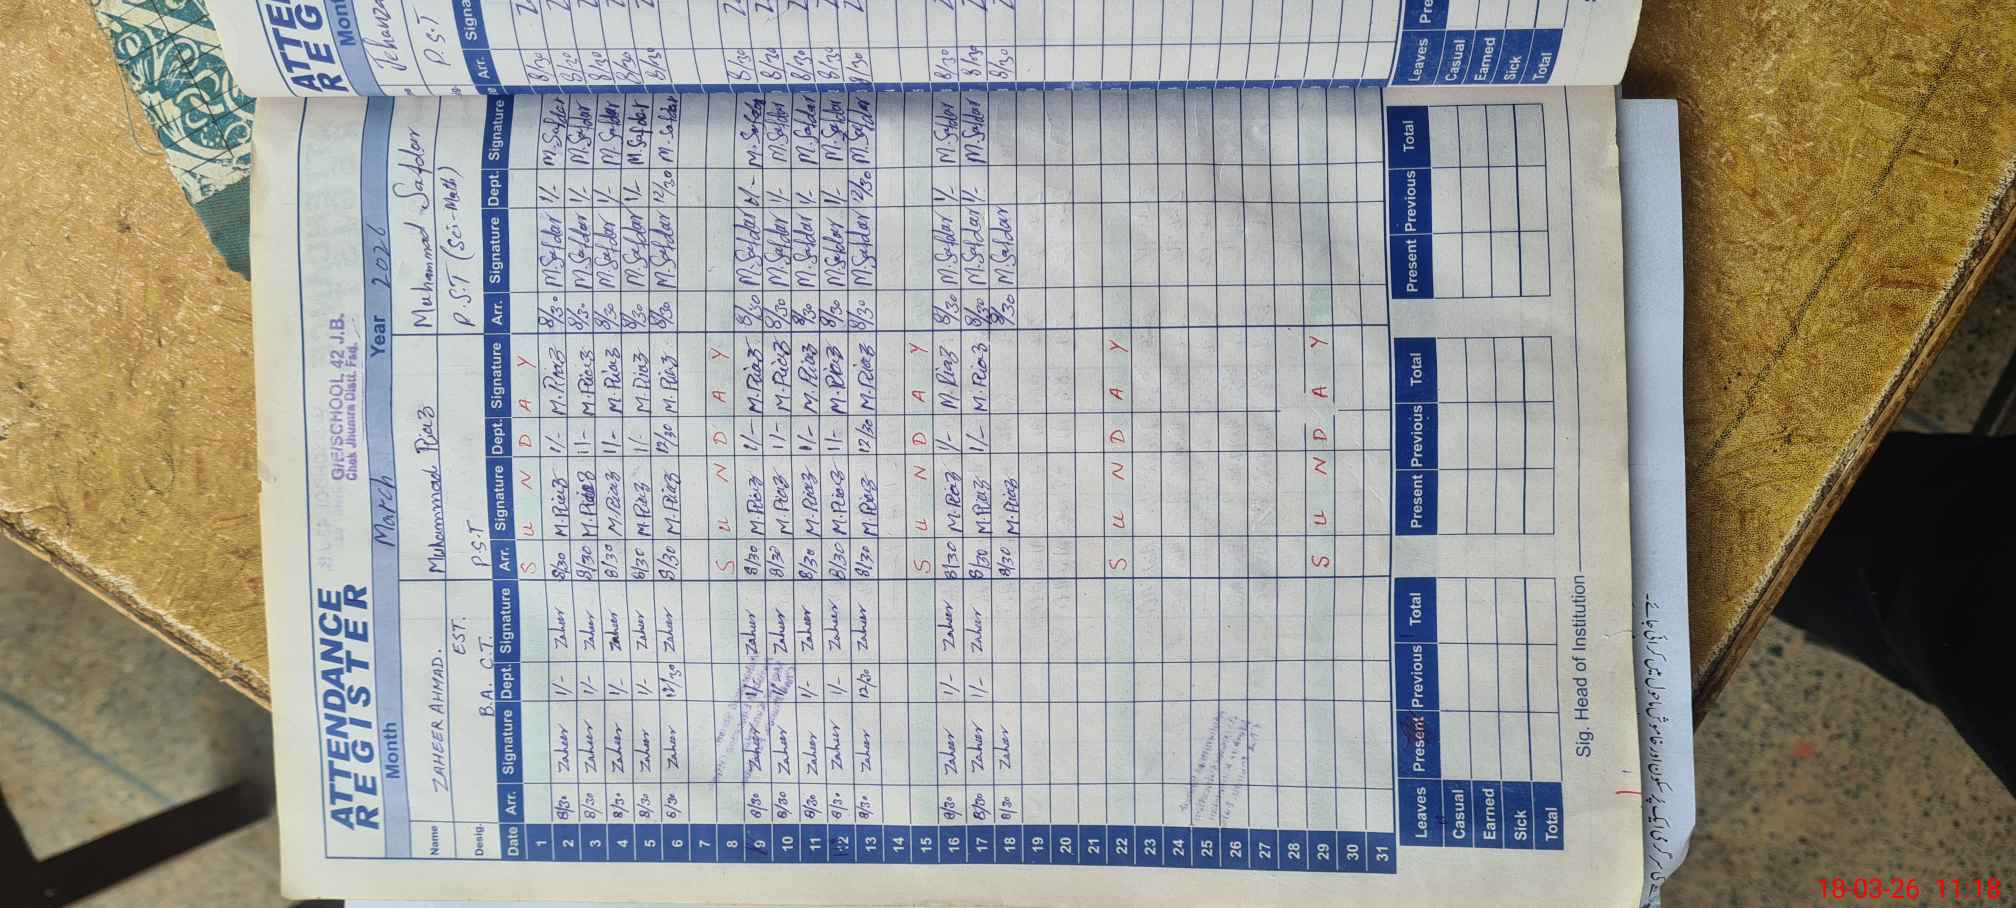 ATTENDANCE
REGISTER
G/E/SCHOOL 42 J.B.
Chak Jhumra Distt. Fsd.
Month March Year 2026
Name ZAHEER AHMAD. Muhammad Riaz Muhammad Safdar
EST.
Desig. B.A. C.T. P.S.T P.S.T (Sci-Math)
Date Arr. Signature Dept. Signature Arr. Signature Dept. Signature Arr. Signature Dept. Signature
1 S U N D A Y
2 8/30 Zaheer 1/- Zaheer 8/30 M.Riaz 1/- M.Riaz 8/30 M.Safdar 1/- M.Safdar
3 8/30 Zaheer 1/- Zaheer 8/30 M.Riaz 1/- M.Riaz 8/30 M.Safdar 1/- M.Safdar
4 8/30 Zaheer 1/- Zaheer 8/30 M.Riaz 1/- M.Riaz 8/30 M.Safdar 1/- M.Safdar
5 8/30 Zaheer 1/- Zaheer 8/30 M.Riaz 1/- M.Riaz 8/30 M.Safdar 1/- M.Safdar
6 8/30 Zaheer 12/30 Zaheer 8/30 M.Riaz 12/30 M.Riaz 8/30 M.Safdar 12/30 M.Safdar
7
8 S U N D A Y
9 8/30 Zaheer 1/- Zaheer 8/30 M.Riaz 1/- M.Riaz 8/30 M.Safdar 1/- M.Safdar
10 8/30 Zaheer 1/- Zaheer 8/30 M.Riaz 1/- M.Riaz 8/30 M.Safdar 1/- M.Safdar
11 8/30 Zaheer 1/- Zaheer 8/30 M.Riaz 1/- M.Riaz 8/30 M.Safdar 1/- M.Safdar
12 8/30 Zaheer 1/- Zaheer 8/30 M.Riaz 1/- M.Riaz 8/30 M.Safdar 1/- M.Safdar
13 8/30 Zaheer 12/30 Zaheer 8/30 M.Riaz 12/30 M.Riaz 8/30 M.Safdar 12/30 M.Safdar
14
15 S U N D A Y
16 8/30 Zaheer 1/- Zaheer 8/30 M.Riaz 1/- M.Riaz 8/30 M.Safdar 1/- M.Safdar
17 8/30 Zaheer 1/- Zaheer 8/30 M.Riaz 1/- M.Riaz 8/30 M.Safdar 1/- M.Safdar
18 8/30 Zaheer 8/30 M.Riaz 8/30 M.Safdar
19
20
21
22 S U N D A Y
23
24
25
26
27
28
29 S U N D A Y
30
31
Leaves Present Previous Total Present Previous Total Present Previous Total
Casual
Earned
Sick
Total
Sig. Head of Institution
P.S.T
Arr.
8/30
8/30
8/30
8/30
8/30
8/30
8/30
8/30
8/30
8/30
8/30
8/30
8/30
Leaves
Casual
Earned
Sick
Total
18-03-26 11:18